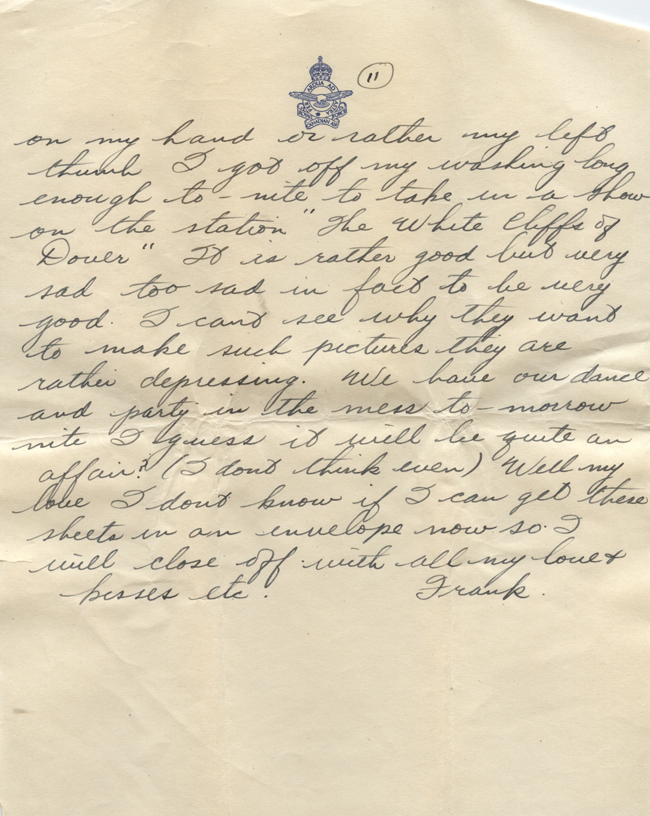 11
on my hand or rather my left
thumb I got off my washing long
enough to-nite to take in a show
on the station "The White Cliffs of
Dover" It is rather good but very
sad too sad in fact to be very
good. I cant see why they want
to make such pictures they are
rather depressing. We have our dance
and party in the mess to-morrow
nite I guess it will be quite an
affair? (I dont think even) Well my
love I dont know if I can get these
sheets in an envelope now so I
will close off with all my love &
kisses etc.
Frank.